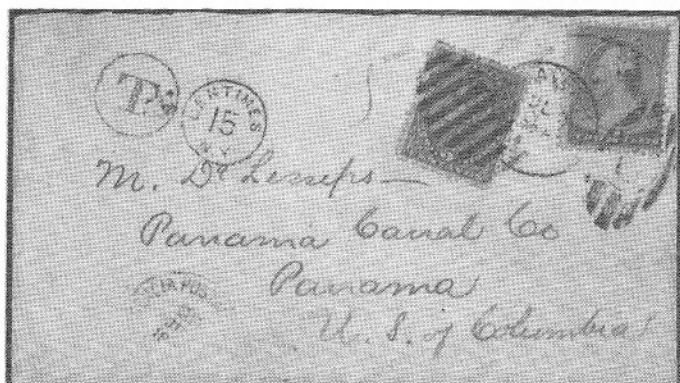 T.
CENTIMES
15
N.Y.
M. De Lesseps—
Panama Canal Co
Panama
U. S. of Columbia